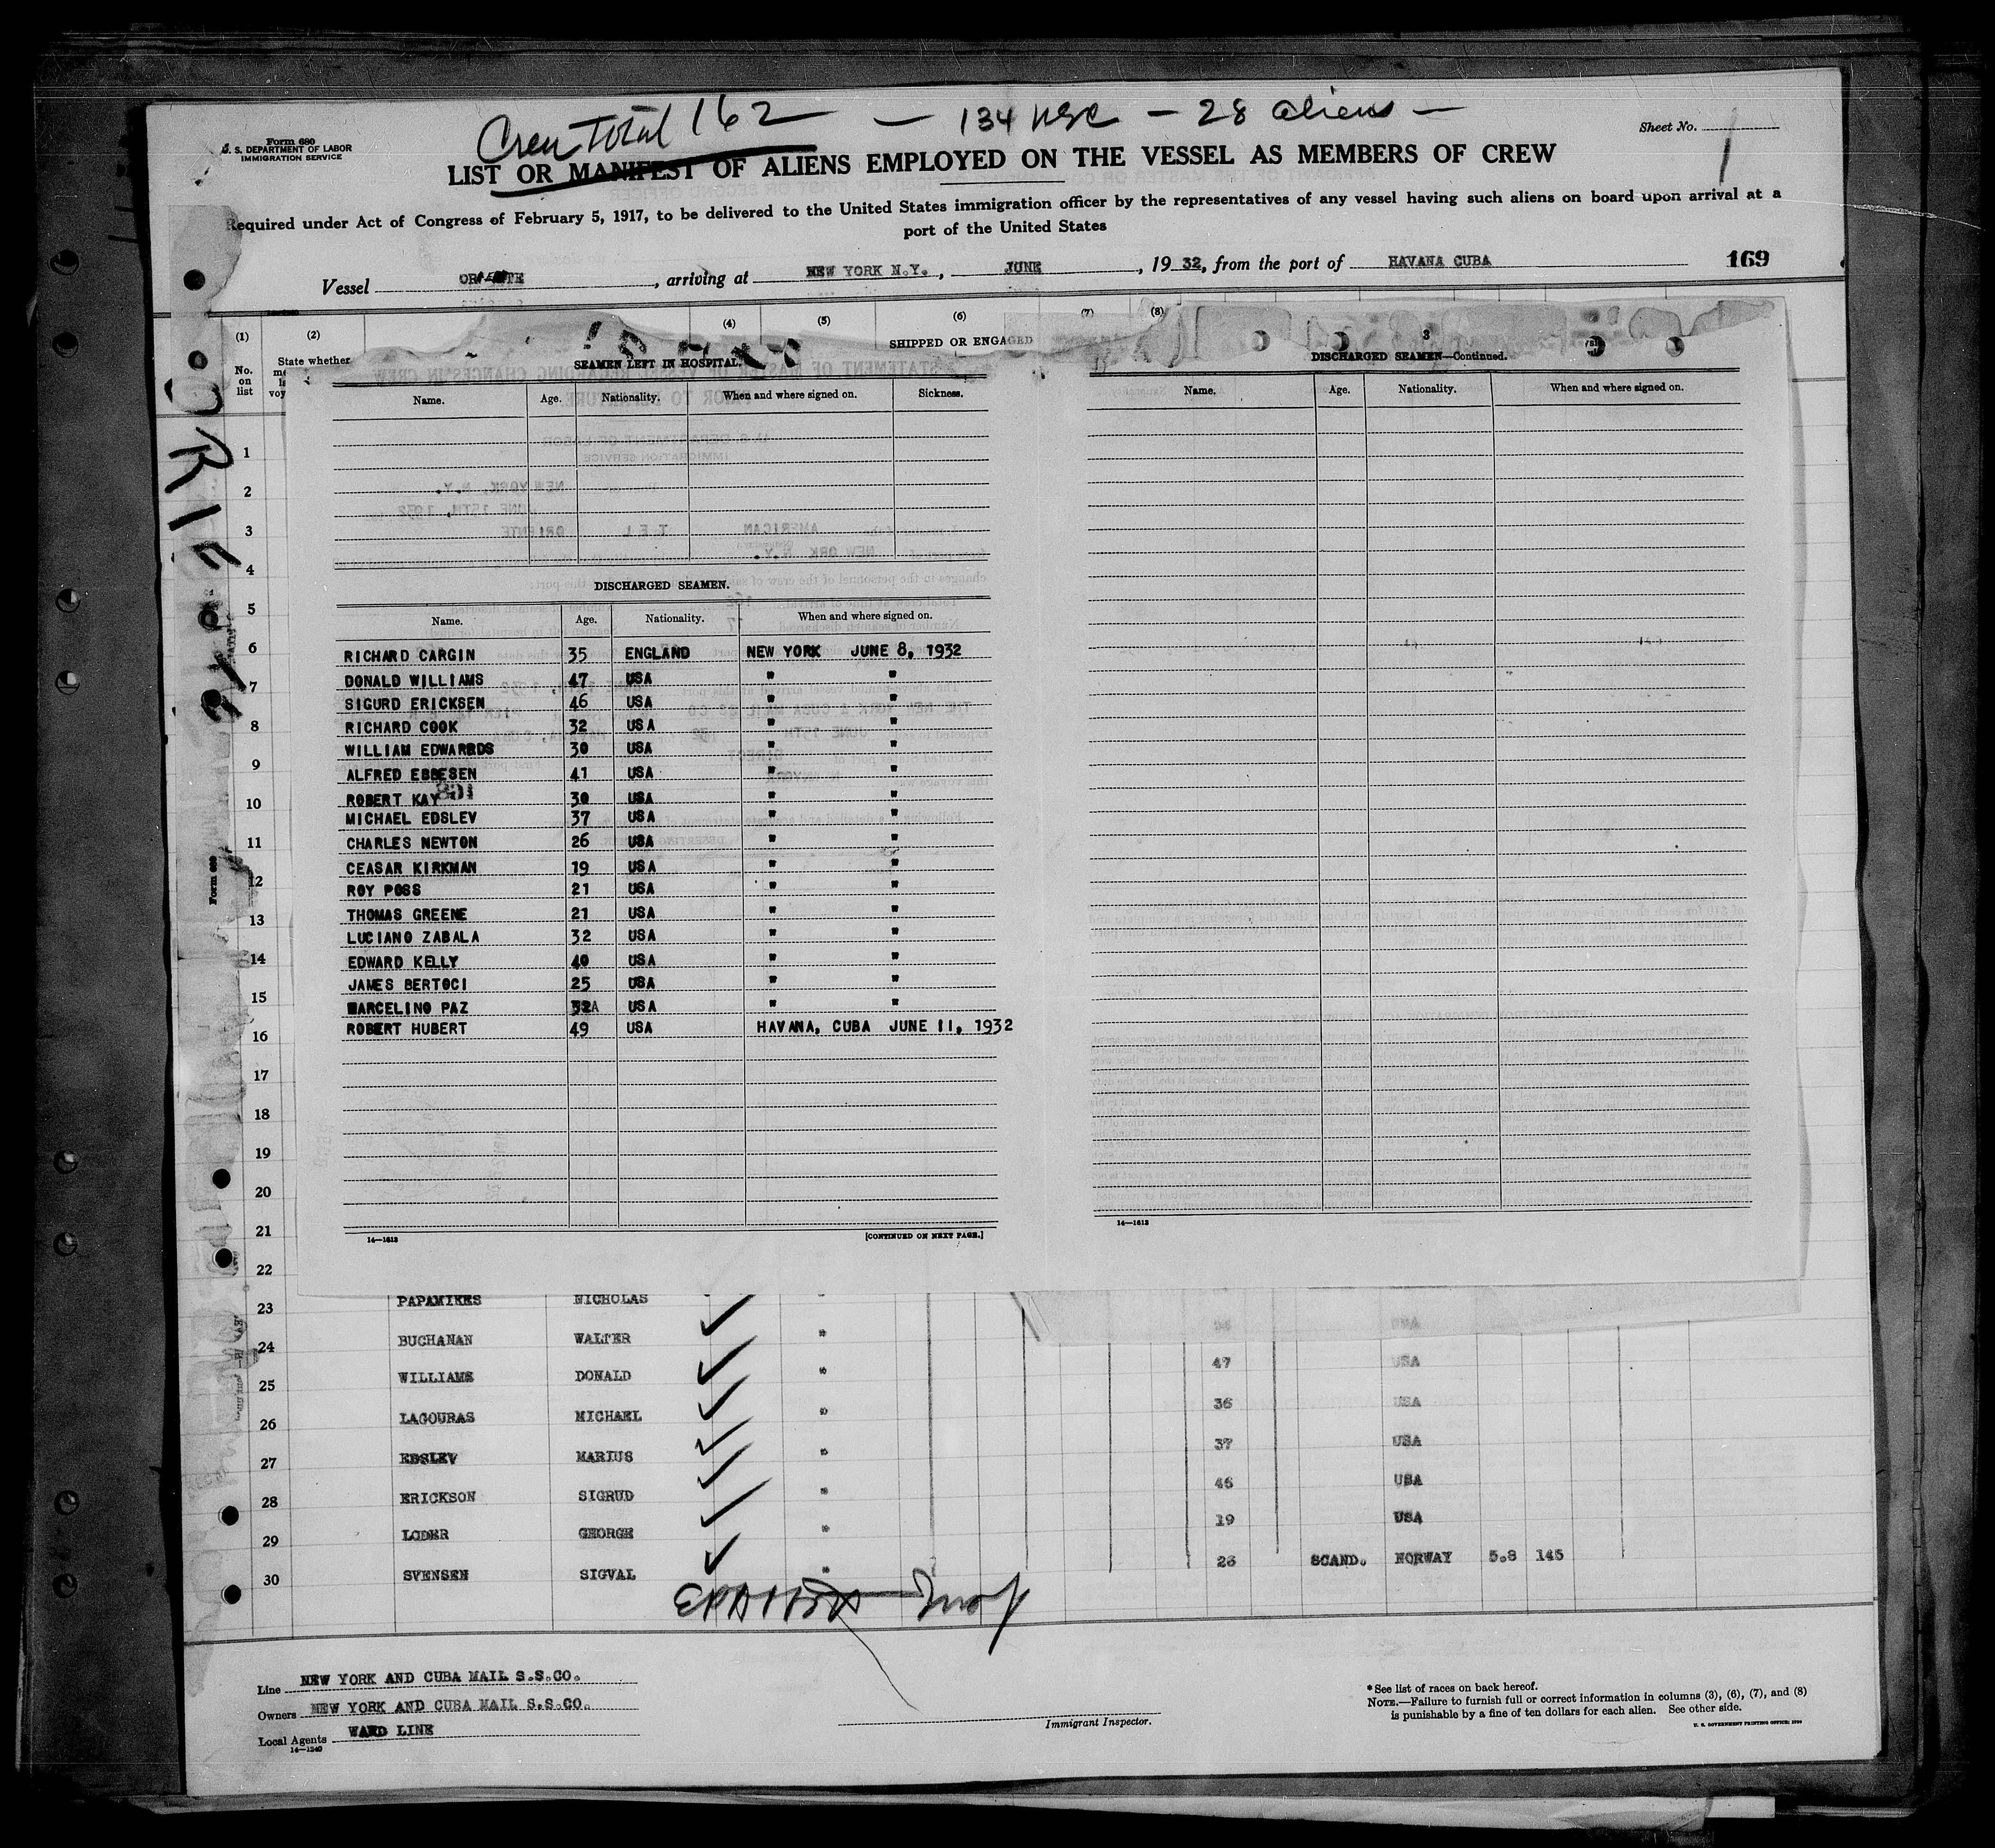 Crew Total 162 — 134 USC — 28 aliens —
Form 680
U. S. DEPARTMENT OF LABOR
IMMIGRATION SERVICE
Sheet No. 1
LIST OR MANIFEST OF ALIENS EMPLOYED ON THE VESSEL AS MEMBERS OF CREW
Required under Act of Congress of February 5, 1917, to be delivered to the United States immigration officer by the representatives of any vessel having such aliens on board upon arrival at a
port of the United States
Vessel ORIENTE, arriving at NEW YORK N.Y., JUNE, 1932, from the port of HAVANA CUBA 169
(1) (2) (4) (5) (6) (7) (8)
No. on list
State whether
SHIPPED OR ENGAGED
SEAMEN LEFT IN HOSPITAL.
Name. Age. Nationality. When and where signed on. Sickness.
DISCHARGED SEAMEN.
Name. Age. Nationality. When and where signed on.
RICHARD CARGIN 35 ENGLAND NEW YORK JUNE 8, 1932
DONALD WILLIAMS 47 USA " "
SIGURD ERICKSEN 46 USA " "
RICHARD COOK 32 USA " "
WILLIAM EDWARRDS 30 USA " "
ALFRED EBBESEN 41 USA " "
ROBERT KAY 30 USA " "
MICHAEL EDSLEV 37 USA " "
CHARLES NEWTON 26 USA " "
CEASAR KIRKMAN 19 USA " "
ROY POSS 21 USA " "
THOMAS GREENE 21 USA " "
LUCIANO ZABALA 32 USA " "
EDWARD KELLY 40 USA " "
JAMES BERTOCI 25 USA " "
MARCELINO PAZ 32A USA " "
ROBERT HUBERT 49 USA HAVANA, CUBA JUNE 11, 1932
14—1613 [CONTINUED ON NEXT PAGE.]
3
DISCHARGED SEAMEN—Continued.
Name. Age. Nationality. When and where signed on.
14—1613
ORIENTE
Form 680
1
2
3
4
5
6
7
8
9
10
11
12
13
14
15
16
17
18
19
20
21
22
23 PAPAMIKES NICHOLAS "
24 BUCHANAN WALTER " USA
25 WILLIAMS DONALD " 47 USA
26 LAGOURAS MICHAEL " 36 USA
27 EDSLEV MARIUS " 37 USA
28 ERICKSON SIGRUD " 46 USA
29 LODER GEORGE " 19 USA
30 SVENSEN SIGVAL " 26 SCAND. NORWAY 5.8 145
Line NEW YORK AND CUBA MAIL S.S.CO.
Owners NEW YORK AND CUBA MAIL S.S.CO.
Local Agents WARD LINE
14—1240
Immigrant Inspector.
* See list of races on back hereof.
NOTE.—Failure to furnish full or correct information in columns (3), (6), (7), and (8)
is punishable by a fine of ten dollars for each alien. See other side.
U. S. GOVERNMENT PRINTING OFFICE: 1930